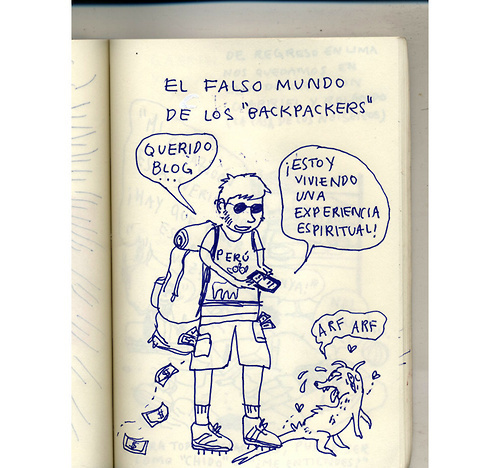 EL FALSO MUNDO
DE LOS "BACKPACKERS"
QUERIDO
BLOG
...
¡ESTOY
VIVIENDO
UNA
EXPERIENCIA
ESPIRITUAL!
PERÚ
ARF ARF
$
$
$